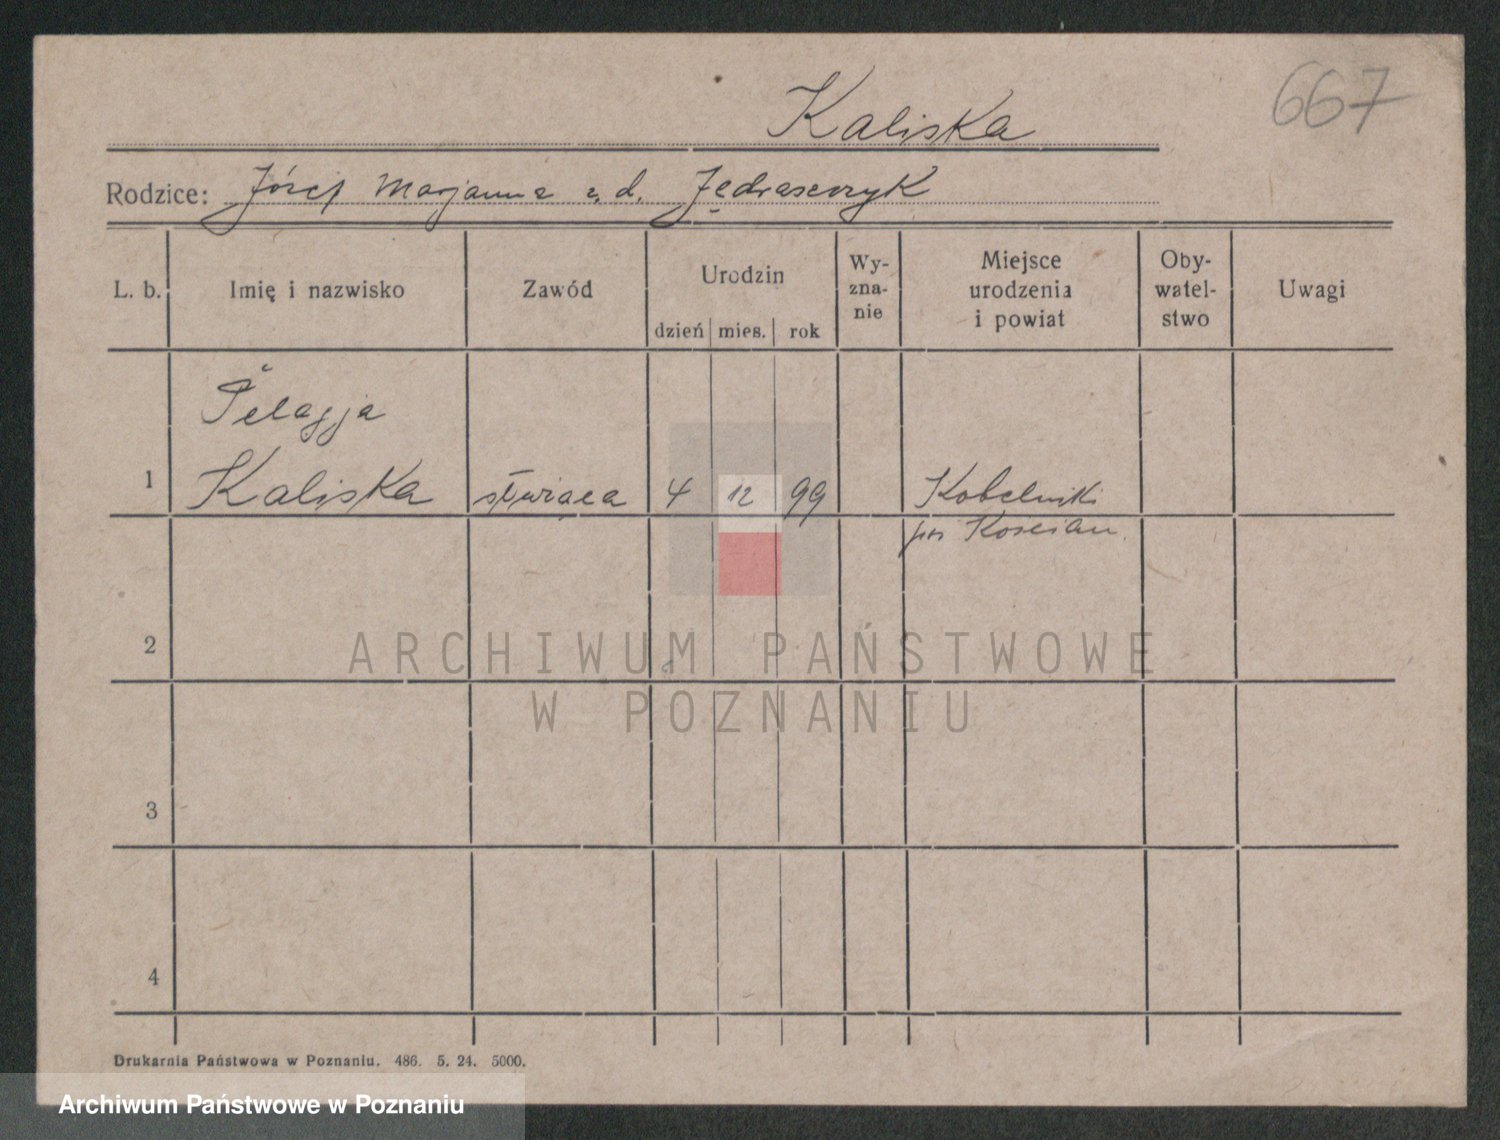 667
Kaliska
Rodzice: Józef Marjanna z d. Jędraszczyk
L. b. Imię i nazwisko Zawód Urodzin dzień mies. rok Wy-zna-nie Miejsce urodzenia i powiat Oby-watel-stwo Uwagi
Pelagja
1 Kaliska służąca 4 12 99 Kobelniki
Koscian
2
ARCHIWUM PAŃSTWOWE
W POZNANIU
3
4
Drukarnia Państwowa w Poznaniu. 486. 5. 24. 5000.
Archiwum Państwowe w Poznaniu